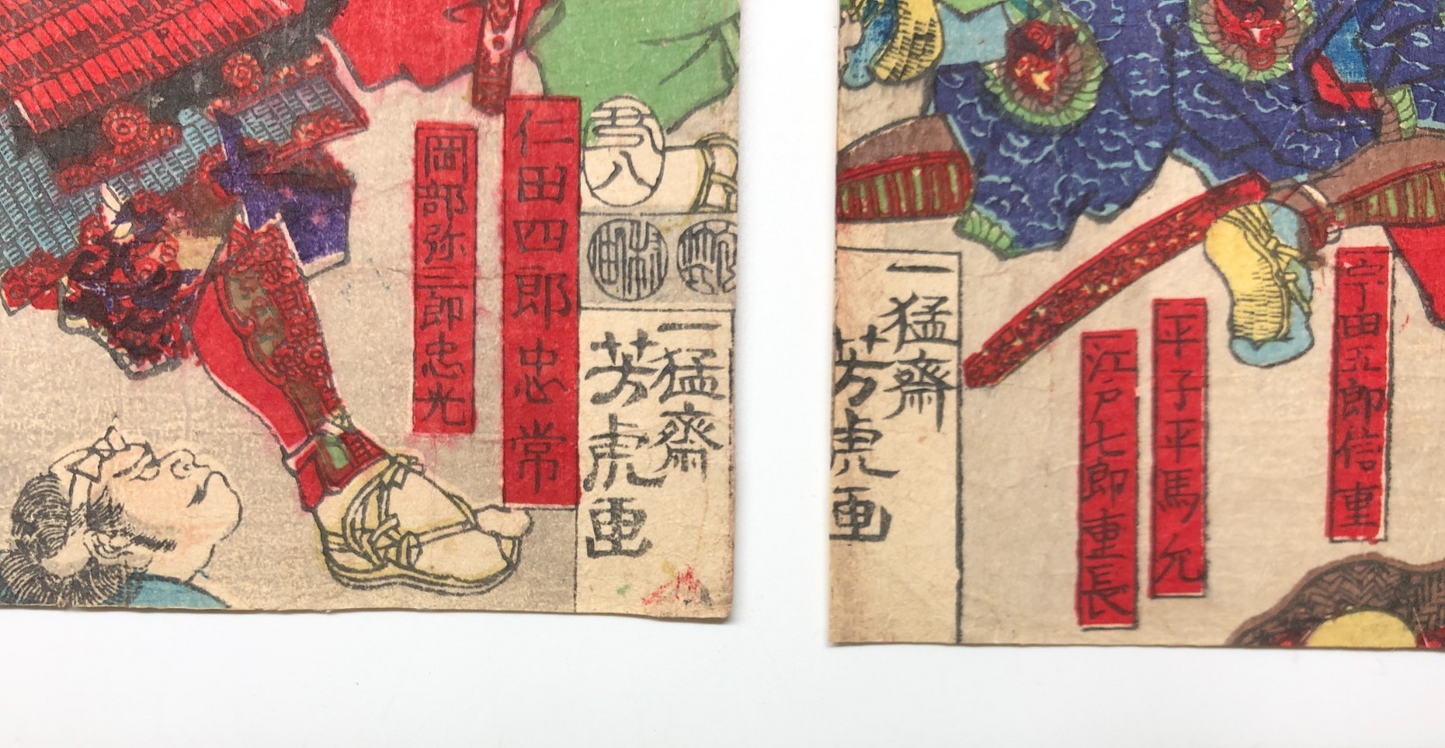 岡部弥三郎忠光
仁田四郎忠常
吾八
一猛齋
芳虎画
一猛齋
芳虎画
江戸七郎重長
平子平馬允
宇田五郎信重